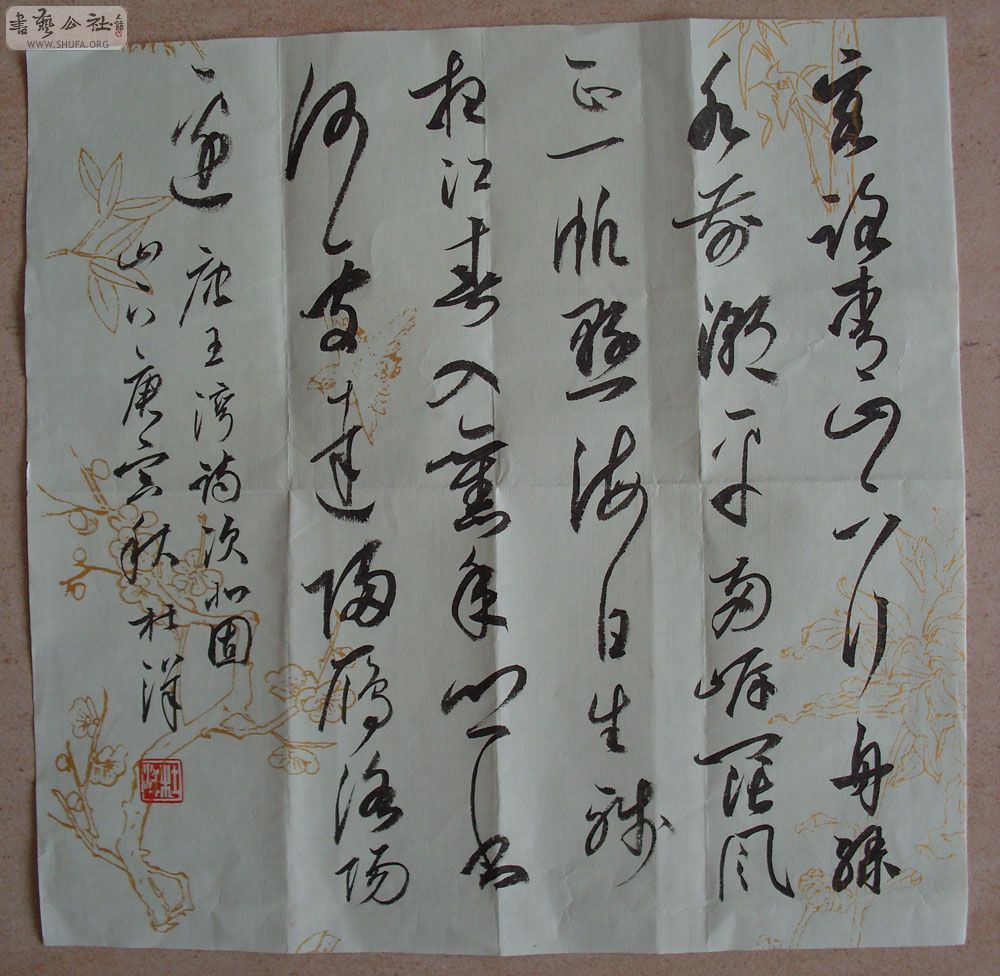 書藝公社
WWW.SHUFA.ORG
客路青山下行舟綠
水前潮平兩岸闊風
正一帆懸海日生殘
夜江春入舊年鄉書
何處達歸雁洛陽
邊 唐王灣詩次北固
山下庚寅秋杜洋
杜洋